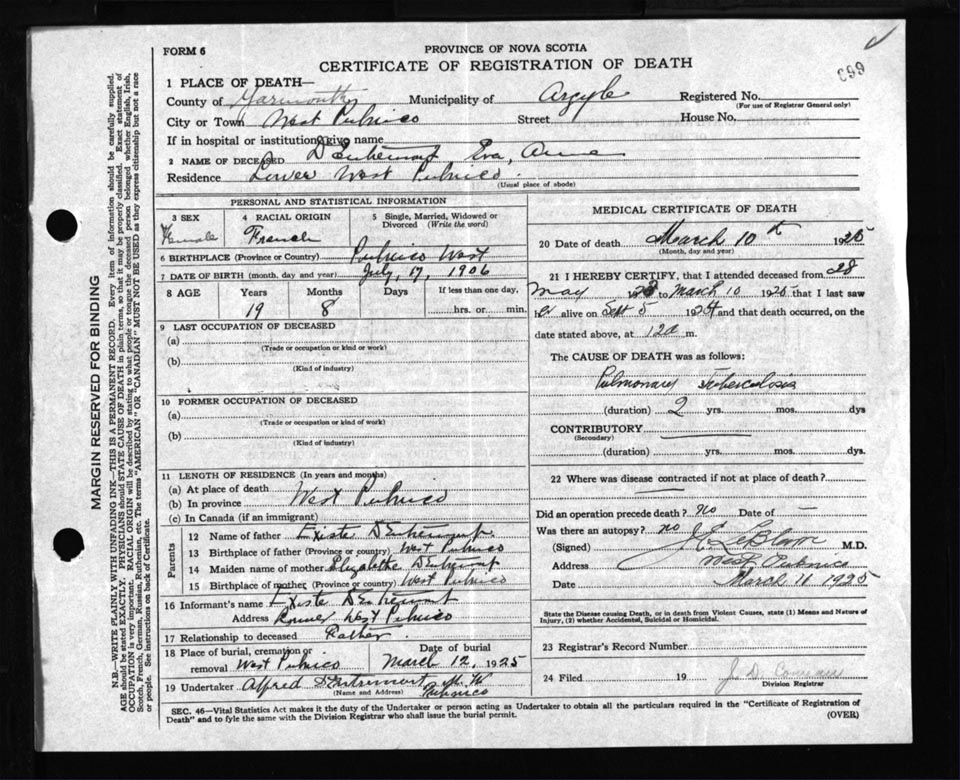 FORM 6
PROVINCE OF NOVA SCOTIA
CERTIFICATE OF REGISTRATION OF DEATH
699
1 PLACE OF DEATH—
County of Yarmouth Municipality of Argyle Registered No.
(For use of Registrar General only)
City or Town West Pubnico Street House No.
If in hospital or institution, give name
2 NAME OF DECEASED D'Entremont Eva, Anne
Residence Lower West Pubnico.
(Usual place of abode)
PERSONAL AND STATISTICAL INFORMATION
3 SEX 4 RACIAL ORIGIN 5 Single, Married, Widowed or Divorced (Write the word)
Female French
6 BIRTHPLACE (Province or Country) Pubnico West
7 DATE OF BIRTH (month, day and year) July, 17, 1906
8 AGE Years Months Days If less than one day,
19 8 hrs. or min.
9 LAST OCCUPATION OF DECEASED
(a)
(Trade or occupation or kind or work)
(b)
(Kind of industry)
10 FORMER OCCUPATION OF DECEASED
(a)
(Trade or occupation or kind of work)
(b)
(Kind of industry)
11 LENGTH OF RESIDENCE (In years and months)
(a) At place of death West Pubnico
(b) In province
(c) In Canada (if an immigrant)
Parents
12 Name of father Existe D'Entremont
13 Birthplace of father (Province or country) West Pubnico
14 Maiden name of mother Elizabethe D'Entremont
15 Birthplace of mother (Province or country) West Pubnico
16 Informant's name Existe D'Entremont
Address Lower West Pubnico
17 Relationship to deceased Father.
18 Place of burial, cremation or removal West Pubnico Date of burial March 12, 1925
19 Undertaker Alfred D'Entremont M. W Pubnico
(Name and Address)
MEDICAL CERTIFICATE OF DEATH
20 Date of death March 10th 1925
(Month, day and year)
21 I HEREBY CERTIFY, that I attended deceased from 28
May 1923 to March 10 1925 that I last saw
alive on Sept 5 1924 and that death occurred, on the
date stated above, at 12 a m.
The CAUSE OF DEATH was as follows:
Pulmonary Tuberculosis
(duration) 2 yrs. mos. dys
CONTRIBUTORY
(Secondary)
(duration) yrs. mos. dys.
22 Where was disease contracted if not at place of death?
Did an operation precede death? no Date of —
Was there an autopsy? no
(Signed) LeBlanc M.D.
Address West Pubnico
Date March 11 1925
State the Disease causing Death, or in death from Violent Causes, state (1) Means and Nature of
Injury, (2) whether Accidental, Suicidal or Homicidal.
23 Registrar's Record Number
24 Filed 19 J. D.
Division Registrar
SEC. 46—Vital Statistics Act makes it the duty of the Undertaker or person acting as Undertaker to obtain all the particulars required in the "Certificate of Registration of
Death" and to fyle the same with the Division Registrar who shall issue the burial permit.
(OVER)
MARGIN RESERVED FOR BINDING
N.B.—WRITE PLAINLY WITH UNFADING INK—THIS IS A PERMANENT RECORD. Every item of information should be carefully supplied.
AGE should be stated EXACTLY. PHYSICIANS should STATE CAUSE OF DEATH in plain terms, so that it may be properly classified. Exact statement of
OCCUPATION is very important. RACIAL ORIGIN will be described by stating to what people or tongue the deceased person belonged whether English, Irish,
Scotch, French, German, Russian, Ruthenian, etc. The terms "AMERICAN" OR "CANADIAN" MUST NOT BE USED as they express citizenship but not a race
or people. See instructions on back of Certificate.